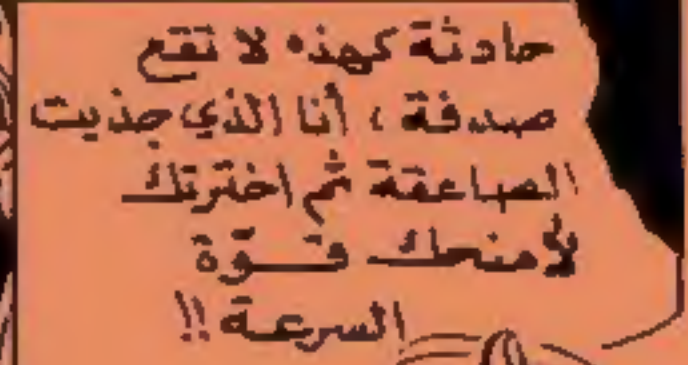 حادثة كهذه لا تقع
صدفة ، أنا الذي جذبت
الصاعقة ثم اخترتك
لأمنحك قــوّة
السرعة !!